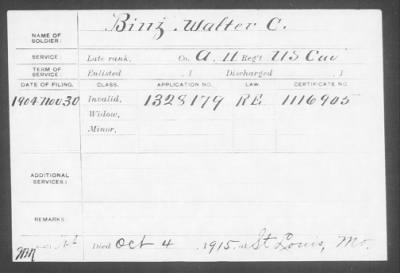 NAME OF SOLDIER: Binz, Walter C.
SERVICE: Late rank, Co. A, 11 Reg't US Cav
TERM OF SERVICE: Enlisted , 1 Discharged , 1
DATE OF FILING. CLASS. APPLICATION NO. LAW. CERTIFICATE NO.
1904 Nov 30 Invalid, 1328179 RE 1116905
Widow,
Minor,
ADDITIONAL SERVICES:
REMARKS:
Died Oct 4, 1915, at St Louis, Mo.